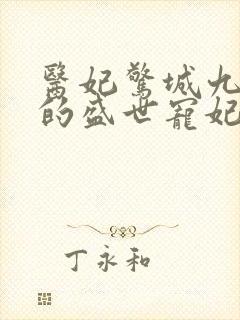 醫妃驚城九
的盛世寵妃
丁永和